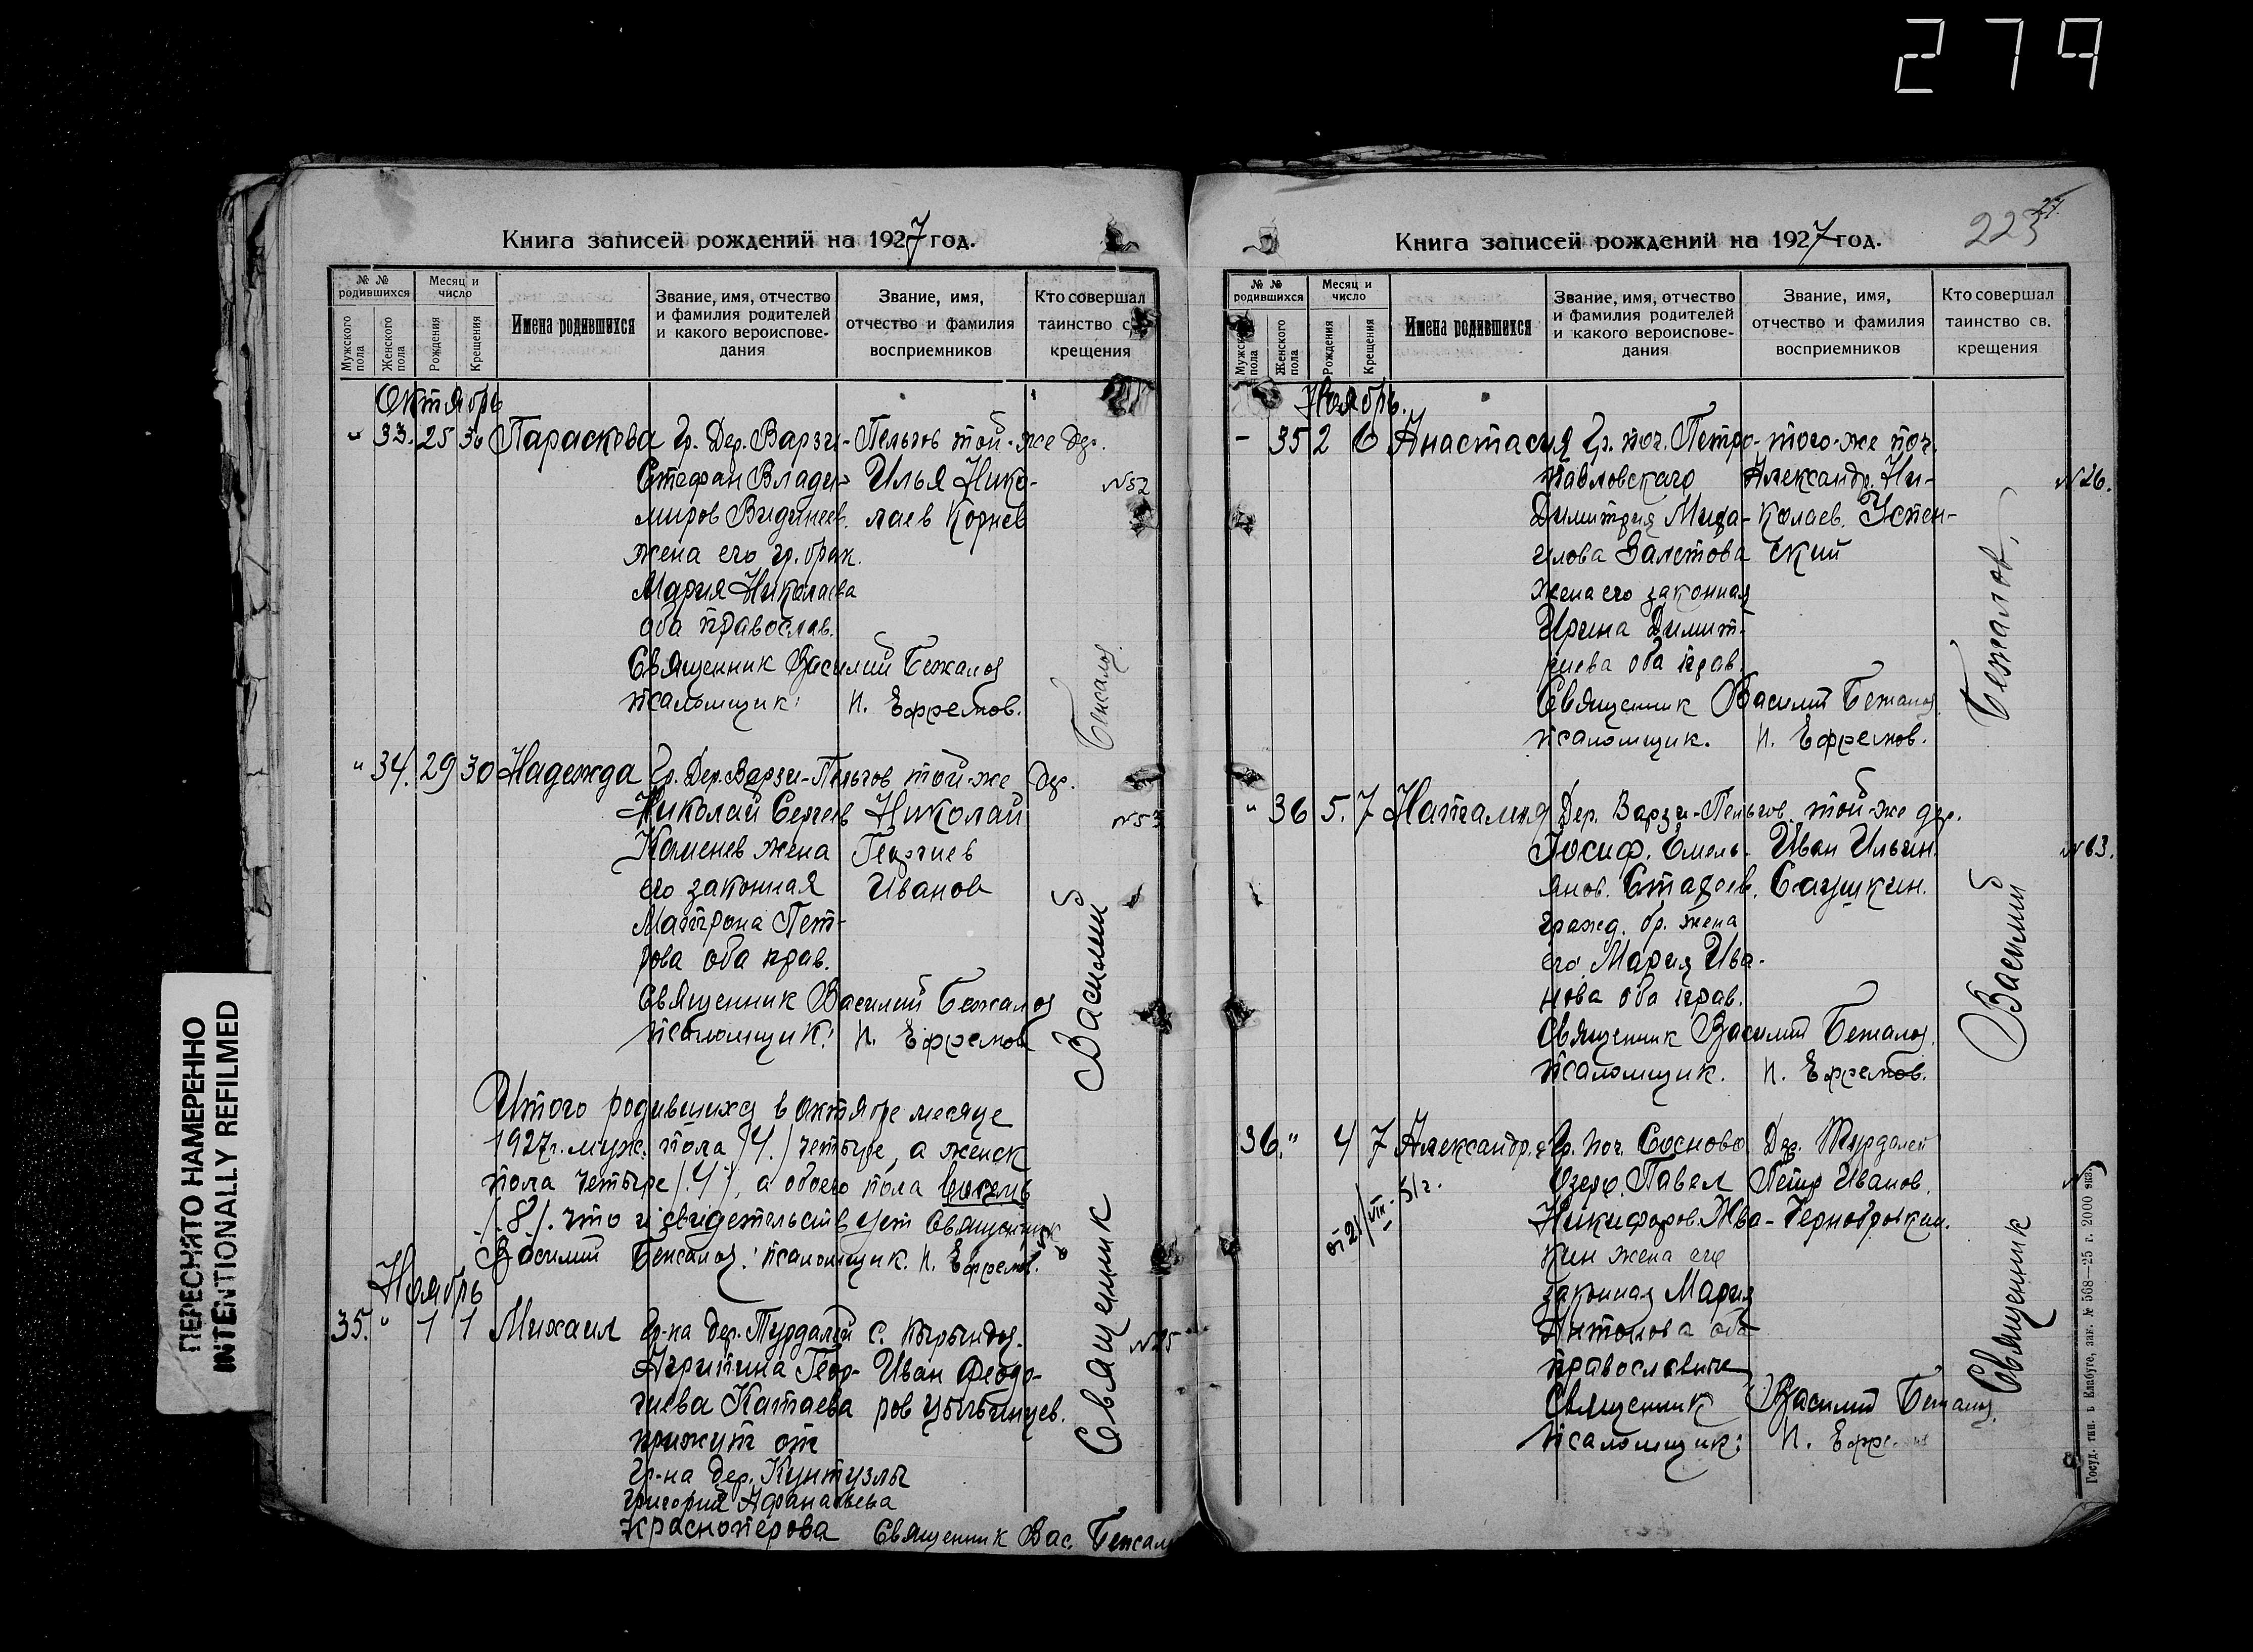 279
Книга записей рождений на 1927 год.
№ № родившихся
Мужского пола
Женского пола
Месяц и число
Рождения
Крещения
Имена родившихся
Звание, имя, отчество и фамилия родителей и какого вероиспове-дания
Звание, имя, отчество и фамилия восприемников
Кто совершал таинство св. крещения
Октябрь
" 33. 25 30 Параскева Гр. Дер. Варзи-Пельгов той-же дер.
Стефан Влади- Илья Нико- №52
миров Видинеев. лаев Корнев
жена его гр. брак.
Мария Николаева
оба православ.
Священник Василий Бежалов
псаломщик: П. Ефремов.
" 34. 29 30 Надежда Гр. Дер. Варзи-Пельгов той-же дер.
Николай Сергеев Николай №53
Каменев жена Георгиев
его законная Иванов
Матрона Пет-
рова оба прав.
Священник Василий Бежалов
псаломщик: П. Ефремов
Итого родившихся в октябре месяце
1927г. муж. пола /4./ четыре, а женск
пола четыре /.4/, а обоего пола восемь
/.8/. что и свидетельствует Священник
Василий Бежалов: псаломщик. П. Ефремов.
Ноябрь
35. " 1 1 Михаил Гр-ка дер. Турдалей с.
Агрипина Геор- Иван Феодо- №25
гиева Катаева ров
прижит от
гр-на дер. Кунтузлы
Григория Афанасьева
Красноперова Священник Вас. Бежалов
Священник Василий Бежалов
ПЕРЕСНЯТО НАМЕРЕННО
INTENTIONALLY REFILMED
223
Книга записей рождений на 1927 год.
№ № родившихся
Мужского пола
Женского пола
Месяц и число
Рождения
Крещения
Имена родившихся
Звание, имя, отчество и фамилия родителей и какого вероиспове-дания
Звание, имя, отчество и фамилия восприемников
Кто совершал таинство св. крещения
Ноябрь.
- 35 2 6 Анастасия Гр. поч. Петро- того-же поч.
павловскаго Александр. Ни- №26.
Димитрия Миха- колаев. Успен-
илова Залетова ский
жена его законная
Ирина Димит-
риева оба прав.
Священник Василий Бежалов.
псаломщик. П. Ефремов.
" 36 5. 7 Наталия Дер. Варзи-Пельгов. той-же дер.
Иосиф. Емель- Иван Ильин. №63.
янов. Саушкин.
гражд. бр. жена
его Мария Ива-
нова оба прав.
Священник Василий Бежалов.
псаломщик. П. Ефремов.
36. " 4 7 Александр. Гр. поч. Сосново Дер. Турдалей
Озеро. Павел Петр Иванов.
Никифоров. Жва- Чернобровкин.
кин жена его
законная Мария
Антонова оба
православные
Священник Василий Бежалов.
псаломщик: П. Ефремов
Священник Василий Бежалов.
Госуд. тип. в Елабуге, зак. № 568—25 г. 2000 экз.